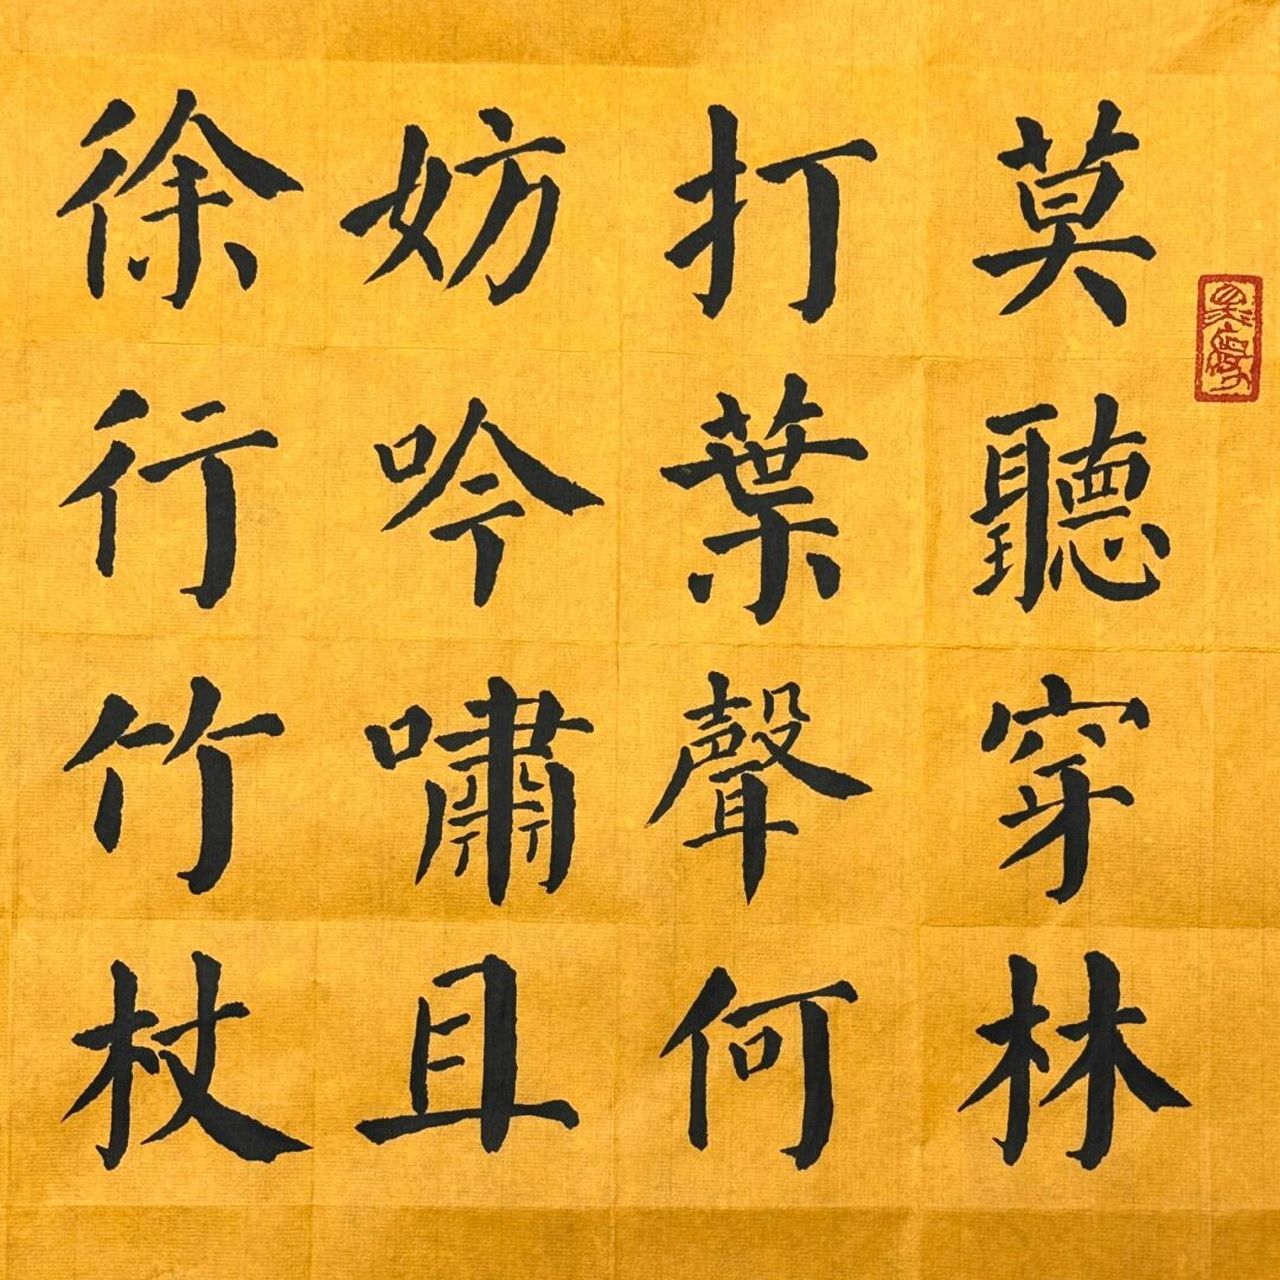 莫聽穿林
打葉聲何
妨吟嘯且
徐行竹杖